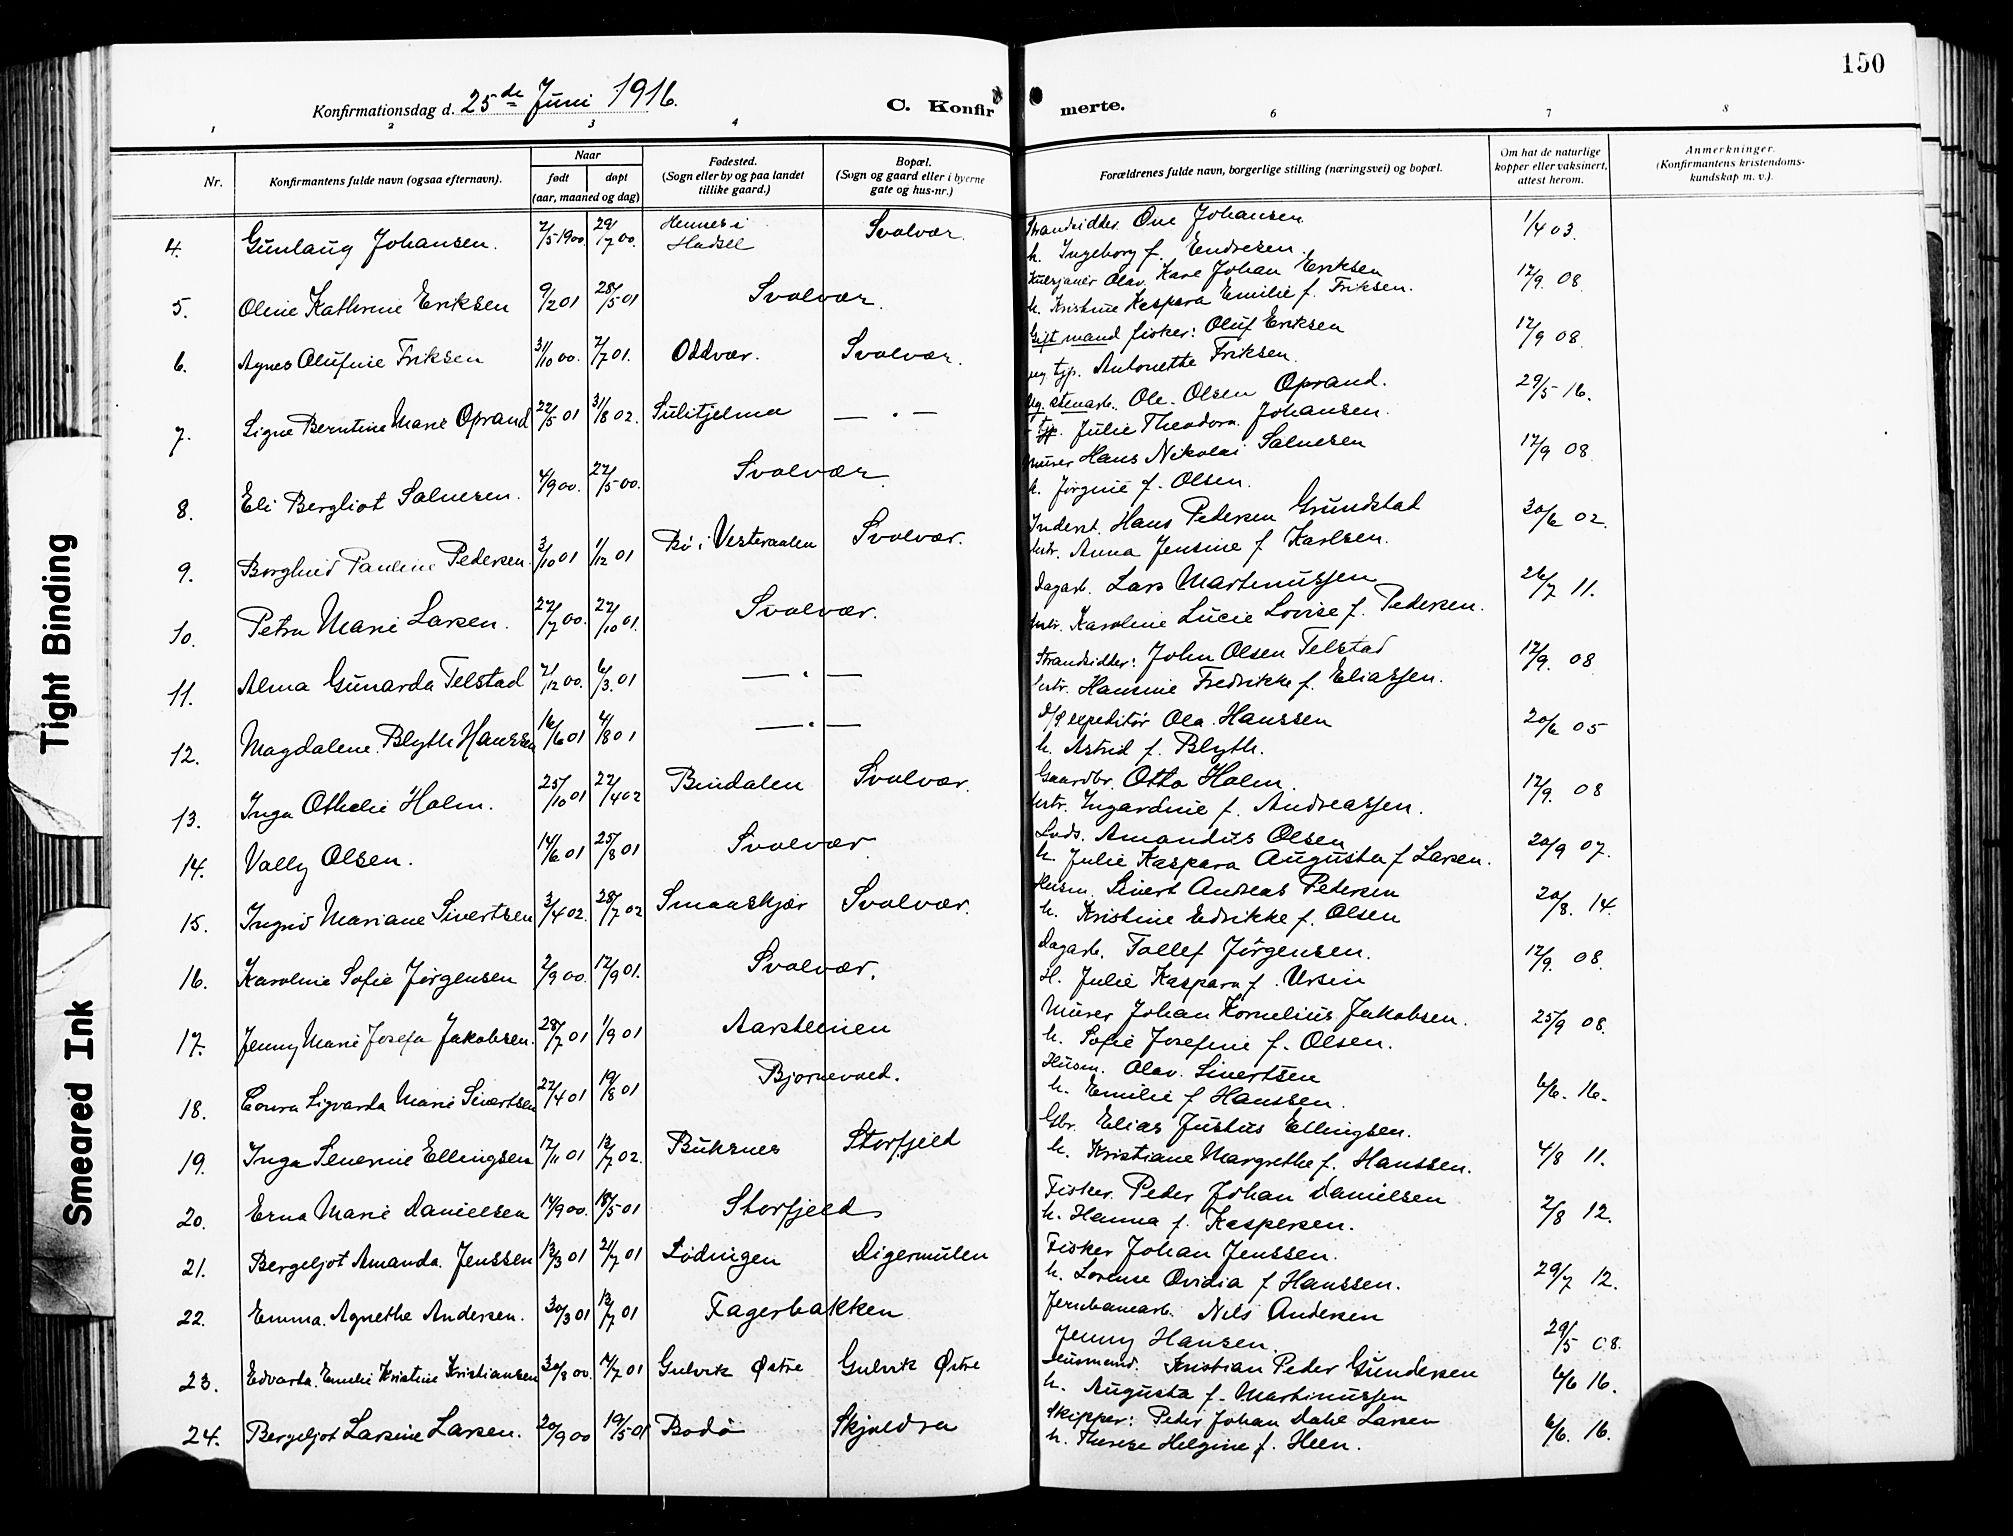 150
Konfirmationsdag d. 25de Juni 1916.
C. Konfirmerte.
1 2 3 4 6 7 8
Nr.
Konfirmantens fulde navn (ogsaa efternavn).
Naar
født døpt
(aar, maaned og dag)
Fødested.
(Sogn eller by og paa landet
tillike gaard.)
Bopæl.
(Sogn og gaard eller i byerne
gate og hus-nr.)
Forældrenes fulde navn, borgerlige stilling (næringsvei) og bopæl.
Om hat de naturlige
kopper eller vaksinert,
attest herom.
Anmerkninger.
(Konfirmantens kristendoms-
kundskap m. v.).
4. Gunlaug Johansen. 2/5 1900. 29/7 00. Hennes i Hadsel Svolvær. Strandsidder Ove Johansen
h. Ingeborg f. Endresen. 1/4 03.
5. Oline Kathrine Eriksen 9/2 01 28/5 01 Svolvær. Olav Karl Johan Eriksen
h. Kristine Kaspara Emilie f. Friksen. 12/9. 08.
6. Agnes Olufine Friksen 31/10 00. 7/7 01. Oddvær. Svolvær. Gift mand fisker: Oluf Eriksen
ug. tjp. Antonette Friksen. 12/9 08.
7. Signe Berntine Marie Oprand 22/5 01 31/8 02. Sulitjelma — " — Ug. stenarb. Ole Olsen Oprand.
" tjp. Julie Theodora Johansen. 29/5 16.
8. Eli Bergliot Salvesen. 4/9 00. 27/5 00. Svolvær. Murer Hans Nikolai Salvesen
h. Jørgine f. Olsen. 12/9 08.
9. Borghild Pauline Pedersen. 3/10 01 1/12 01 Bø i Vesteraalen Svolvær. Inderst. Hans Pedersen Grundstad
hstr. Anna Jensine f Karlsen. 30/6 02.
10. Petra Marie Larsen. 27/7 00. 27/10 01. Svolvær. Dagarb. Lars Martinussen
hstr. Karoline Lucie Lovise f. Pedersen. 26/7 11.
11. Alma Gunarda Telstad 2/12 00. 6/3. 01 — " — Strandsidder: John Olsen Telstad
hstr. Hansine Fredrikke f. Eliassen. 12/9. 08
12. Magdalene Blyth Hanssen 16/6 01 4/8 01 — " — D/S expeditør Ola Hanssen
h. Astrid f. Blyth. 20/6 05
13. Inga Othelie Holm. 25/10 01 27/4 02 Bindalen Svolvær. Gaardbr. Otto Holm.
hstr. Ingardine f. Andreassen. 12/9. 08
14. Vally Olsen. 14/6 01 25/8 01 Svolvær Lods. Amandus Olsen
h. Julie Kaspara Augusta f Larsen. 20/9 07.
15. Ingrid Mariane Sivertsen 3/4 02. 28/7 02 Smaaskjær Svolvær. Husm. Sivert Andreas Petersen
h. Kristine Edrikke f. Olsen 20/8. 14.
16. Karoline Sofie Jørgensen 2/9 00. 12/9 01. Svolvær. Dagarb. Tollef Jörgensen.
H. Julie Kaspara f. Ursin 12/9. 08.
17. Jenny Marie Josefa Jakobsen. 28/7 01 1/9 01 Aarsteinen Murer Johan Kornelius Jakobsen.
h. Sofie Josefine f. Olsen. 25/9 08.
18. Lovra Sigvarda Marie Sivertsen 27/4 01 19/8 01 Bjørnevald. Husm. Olav. Sivertsen
h. Emilie f Hanssen. 6/6. 16.
19. Inga Severine Ellingsen 17/11 01 13/7 02. Buksnes Storfjeld Gbr. Elias Justus Ellingsen.
h. Kristiane Margrethe f. Hanssen. 4/8 11.
20. Erna Marie Danielsen 14/9 00. 18/5 01 Storfjeld Fisker. Peder Johan Danielsen
h. Hanna f. Kaspersen. 2/8 12.
21. Bergeljot Amanda. Jenssen 13/3 01 21/7 01 Lødingen Digermulen Fisker Johan Jenssen.
h. Lorense Ovidia f Hanssen. 29/7 12.
22. Emma. Agnethe Andersen. 30/3 01 13/7 01 Fagerbakken Jernbanearb. Nils Andersen
Jenny Hansen. 29/5 08.
23. Edvarda. Emelie Kristine Kristiansen 30/8 00. 7/7 01 Gulvik Østre Gulvik Østre Husmand. Kristian Peder Gundersen
h. Augusta f. Martinussen 6/6 16.
24. Bergeljot Larsine Larsen. 20/9 00 19/5 01 Bodø Skjoldra Skipper: Peder Johan Dahl Larsen
h. Therese Helgine f. Heen. 6/6. 16.
Tight Binding
Smeared Ink